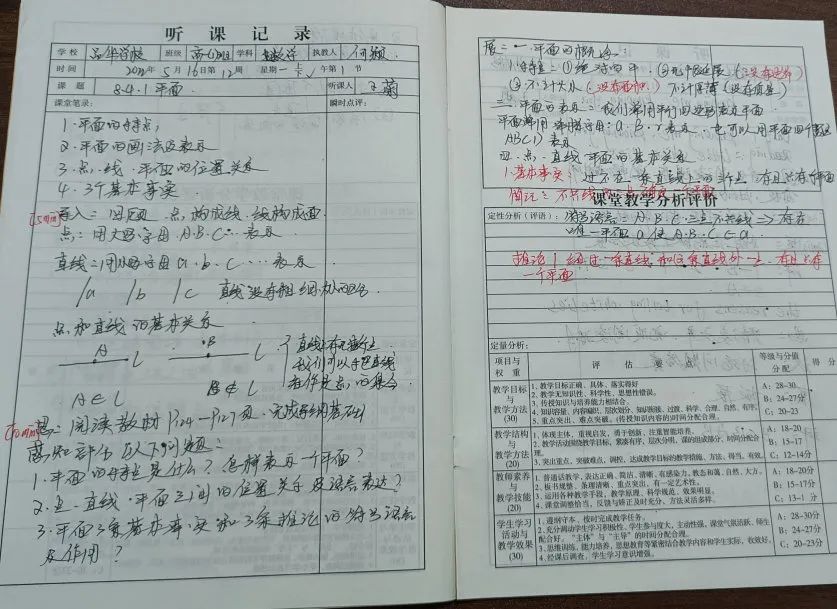 听课记录
学校 品华学校 班级 高一(11)班 学科 数学 执教人 何颖
时间 2022年5月16日第12周 星期一 上 下 午第1节
课题 8.4.1 平面 听课人 王菊
课堂笔录: 瞬时点评:
1.平面的特点,
2.平面的画法及表示
3.点.线.平面的位置关系
4.3个基本事实
导入:用 点构成线.线构成面
点:用大写字母A.B.C…表示
直线:用小写字母a.b.c…表示
/a /b /c 直线没有粗细
点和直线的基本关系
A L B L
直线有无数个点
我们可以把直线
看作是点的集合
A∈L B∉L
思:阅读教材P124-P127页.完成
感知评价 以下问题:
1.平面的特点是什么?怎样表示一个平面?
2.点.直线.平面之间的位置关系及语言表达?
3.平面3条基本事实和3条推论的符号语言
及作用?
展:一.平面的概念:
1.特征:①绝对的平.②无限延展(没有边界)
③不计大小(没有面积)不计厚薄(没有质量)
二.平面的表示:我们常用平行四边形表示平面
平面常用希腊字母:α.β.γ表示.也可以用平面四个顶点
ABCD表示
四.点.直线.平面的基本关系
1.基本事实:过不在一条直线上的三个点.有且只有一个平面
简记:不共线的三点确定一个平面
课堂教学分析评价
定性分析(评语): 符号语言:A.B.C三点不共线⇒存在
唯一平面α使A.B.C∈α.
推论1 经过一条直线和这条直线外一点.有且只有
一个平面
定量分析:
项目与权重 评估要点 等级与分值分配 得分
教学目标与教学方法(30)
1、教学目标正确、具体、落实得好
2、教学无知识性、科学性、思想性错误。
3、传授知识与培养能力相结合。
4、知识容量、内容编织、层次划分、知识联接、过渡、科学、合理、自然、有序。
5、重点突出、难点突破。(传授知识内容的)时间分配合理。
A:28-30
B:24-27分
C:20-23
教学结构与教学方法(20)
1、体现主体,重视启发,勇于创新、注重智能培养。
2、教学活动围绕教学目标,紧凑有序,层次分明,课的组成部分、时间分配合理。
3、突出重点,突破难点,调控,达成教学目标的教学措施、方法、得当、有效。
A:18-20
B:15-17
C:12-14分
教师素养与教学技能(20)
1、普通话教学,表达正确、简洁、清晰、有感染力,教态和蔼、自然、大方。
2、板书规整、条理清晰、重点突出、有一定艺术性。
3、运用各种教学手段、教学原理、科学规范、效果明显。
4、课堂调整恰当,反馈与矫正及时充分、方法灵活多样。
A:18-20分
B:15-17
C:13-1 分
学生学习活动与教学效果(30)
1、遵纲守本、按时完成教学任务。
2、充分调动学生学习积极性,学生参与度大,主动性强,课堂气氛活跃、师生配合好。“主体”与“主导”的时间分配合理。
3、思维训练,能力培养,思想教育等紧密结合教学内容和学生实际,收效好。
4、经课后调查,学生学习意识增强。
A:28-30分
B:24-27分
C:20-23分